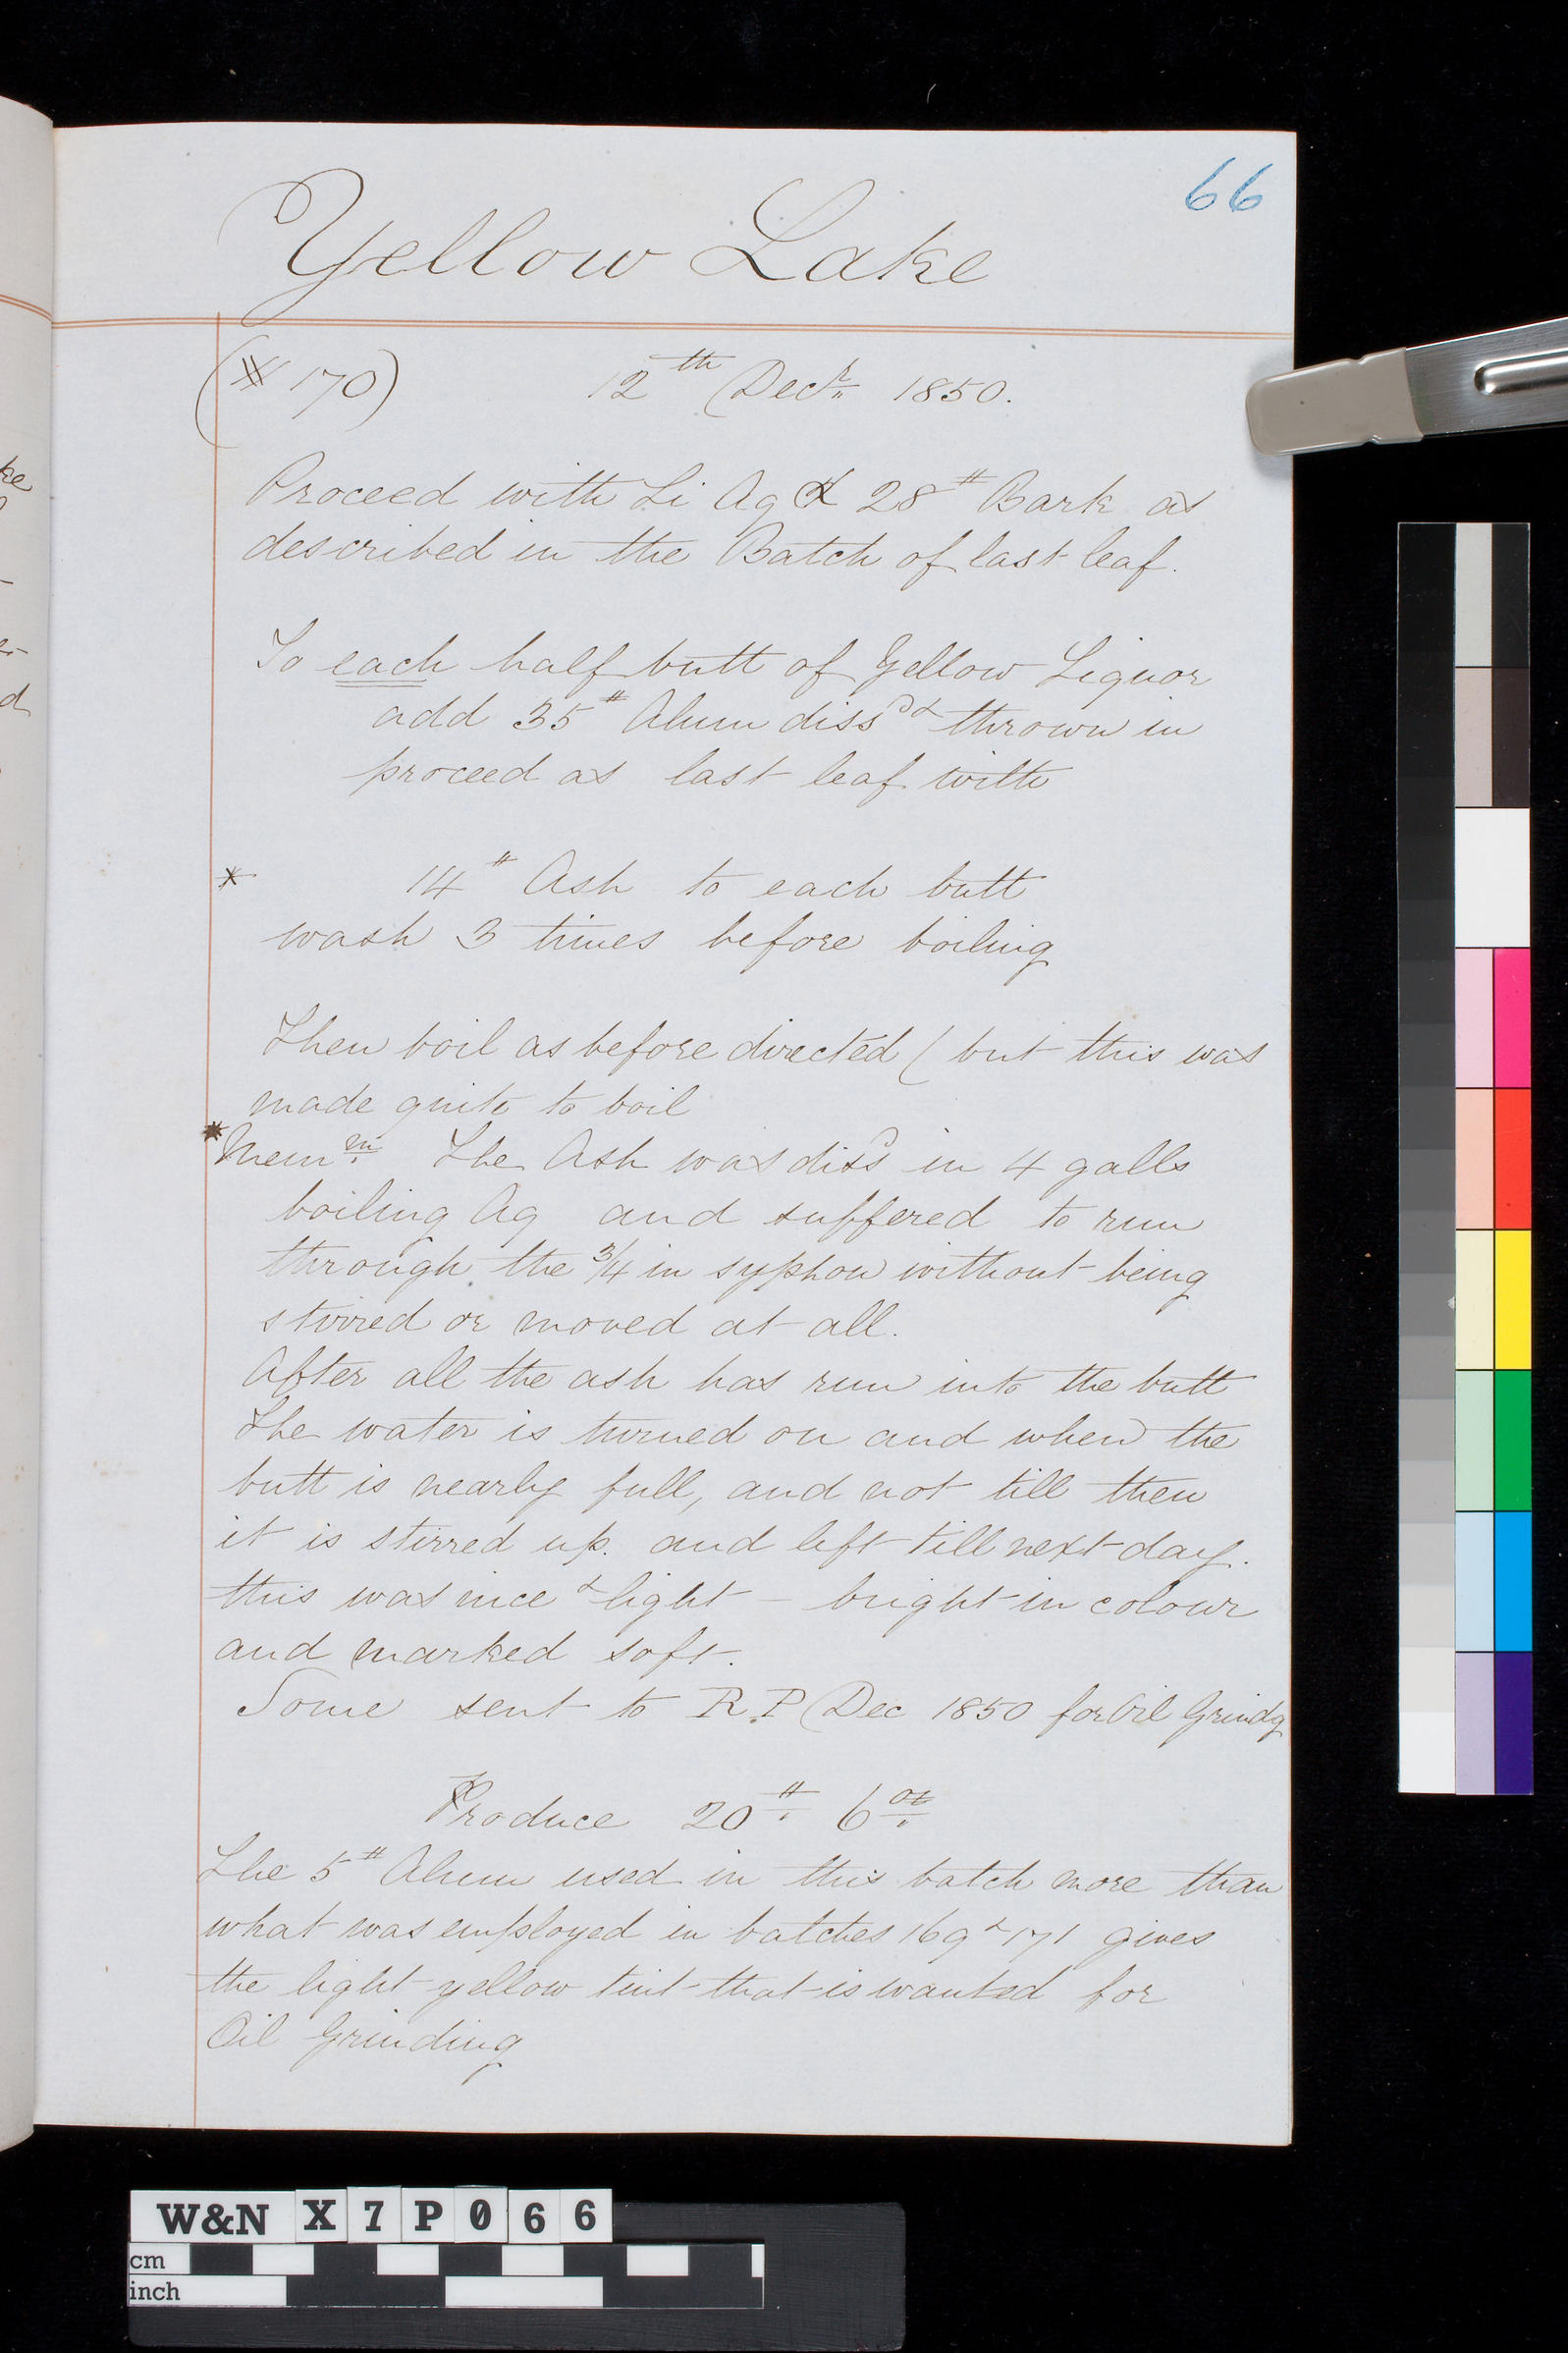 66
Yellow Lake
(# 170) 12th Decr 1850.
Proceed with Li Aq & 28# Bark as
described in the Batch of last leaf.
To each half butt of Yellow Liquor
add 35# Alum dissd & thrown in
proceed as last leaf with
* 14# Ash to each butt
wash 3 times before boiling
Then boil as before directed ( but this was
made quite to boil
* Memm The Ash was dissd in 4 galls
boiling Aq and suffered to run
through the 3/4 in syphon without being
stirred or moved at all.
After all the ash has run into the butt
the water is turned on and when the
butt is nearly full, and not till then
it is stirred up. and left till next day.
this was nice & light - bright in colour
and marked soft.
Some sent to R.P Dec 1850 for Oil Grindg
Produce 20# 6oz
The 5# Alum used in this batch more than
what was employed in batches 169 & 171 gives
the light yellow tint that is wanted for
Oil Grinding
ke
d
W&N X7P066
cm
inch